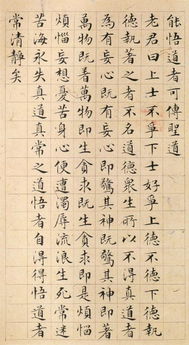 能悟道者可傳聖道
老君曰上士不爭下士好爭上德不德下德執
德執著之者不名道德衆生所以不得真道者
為有妄心既有妄心即驚其神既驚其神即著
萬物既著萬物即生貪求既生貪求即是煩惱
煩惱妄想憂苦身心便遭濁辱流浪生死常沉
苦海永失真道真常之道悟者自得得悟道者
常清靜矣